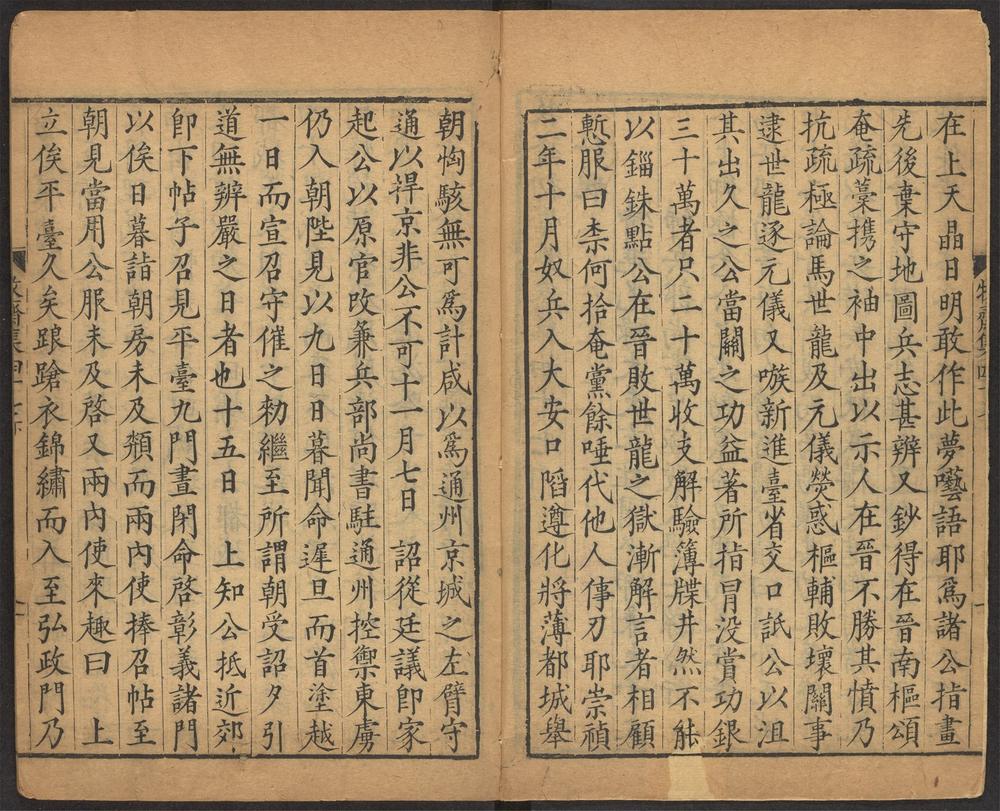 在上天晶日明敢作此夢囈語耶爲諸公指畫
先後棄守地圖兵志甚辨又鈔得在晉南樞頌
奄疏藁携之袖中出以示人在晉不勝其憤乃
抗疏極論馬世龍及元儀熒惑樞輔敗壞關事
逮世龍逐元儀又嗾新進臺省交口詆公以沮
其出久之公當關之功益著所指冒没賞功銀
三十萬者只二十萬收支解驗簿牒井然不能
以錙銖點公在晉敗世龍之獄漸解言者相顧
慙服曰柰何拾奄黨餘唾代他人倳刃耶崇禎
二年十月奴兵入大安口陷遵化將薄都城舉
朝恟駭無可爲計咸以爲通州京城之左臂守
通以捍京非公不可十一月七日　詔從廷議即家
起公以原官改兼兵部尚書駐通州控禦東虜
仍入朝陛見以九日日暮聞命遲旦而首塗越
一日而宣召守催之勑繼至所謂朝受詔夕引
道無辨嚴之日者也十五日　上知公抵近郊
即下帖子召見平臺九門晝閉命啓彰義諸門
以俟日暮詣朝房未及頮而兩內使捧召帖至
朝見當用公服未及啓又兩內使來趣曰　上
立俟平臺久矣踉蹌衣錦繡而入至弘政門乃